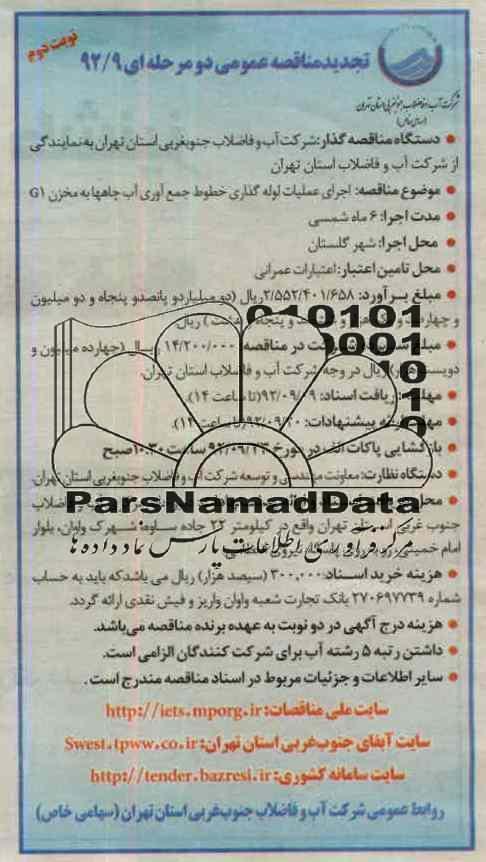 نوبت دوم
تجدیدمناقصه عمومی دو مرحله ای ۹۲/۹
شرکت آب و فاضلاب جنوبغربی استان تهران
(سهامی خاص)
● دستگاه مناقصه گذار: شرکت آب و فاضلاب جنوبغربی استان تهران به نمایندگی
از شرکت آب و فاضلاب استان تهران
● موضوع مناقصه: اجرای عملیات لوله گذاری خطوط جمع آوری آب چاهها به مخزن G1
● مدت اجرا: ۶ ماه شمسی
● محل اجرا: شهر گلستان
● محل تامین اعتبار: اعتبارات عمرانی
● مبلغ برآورد: ۲/۵۵۲/۴۰۱/۶۵۸ ریال (دو میلیارد و پانصدو پنجاه و دو میلیون
و چهارصد و یک هزار و ششصد و پنجاه و هشت) ریال
● مبلغ شرکت در مناقصه: ۱۴/۲۰۰/۰۰۰ ریال (چهارده میلیون و
دویست هزار) ریال در وجه شرکت آب و فاضلاب استان تهران.
● مهلت دریافت اسناد: ۹۲/۰۹/۰۹ (تا ساعت ۱۴).
● مهلت ارائه پیشنهادات: ۹۲/۰۹/۲۰ (تا ساعت ۱۴).
● بازگشایی پاکات الف در مورخ ۹۲/۰۹/۲۳ ساعت ۱۰:۳۰ صبح
● دستگاه نظارت: معاونت مهندسی و توسعه شرکت آب و فاضلاب جنوبغربی استان تهران.
● محل فاضلاب
جنوب غربی استان تهران واقع در کیلومتر ۲۲ جاده ساوه، شهرک واوان، بلوار
امام خمینی
● هزینه خرید اسناد: ۳۰۰,۰۰۰ (سیصد هزار) ریال می باشدکه باید به حساب
شماره ۲۷۰۶۹۷۷۳۹ بانک تجارت شعبه واوان واریز و فیش نقدی ارائه گردد.
● هزینه درج آگهی در دو نوبت به عهده برنده مناقصه می‌باشد.
● داشتن رتبه ۵ رشته آب برای شرکت کنندگان الزامی است.
● سایر اطلاعات و جزئیات مربوط در اسناد مناقصه مندرج است.
سایت ملی مناقصات: http://iets.mporg.ir
سایت آبفای جنوب‌غربی استان تهران: Swest.tpww.co.ir
سایت سامانه کشوری: http://tender.bazresi.ir
روابط عمومی شرکت آب و فاضلاب جنوب‌غربی استان تهران (سهامی خاص)
010101
0001
10
1
0
ParsNamadData
مرکز فرآوری اطلاعات پارس نماد داده ها